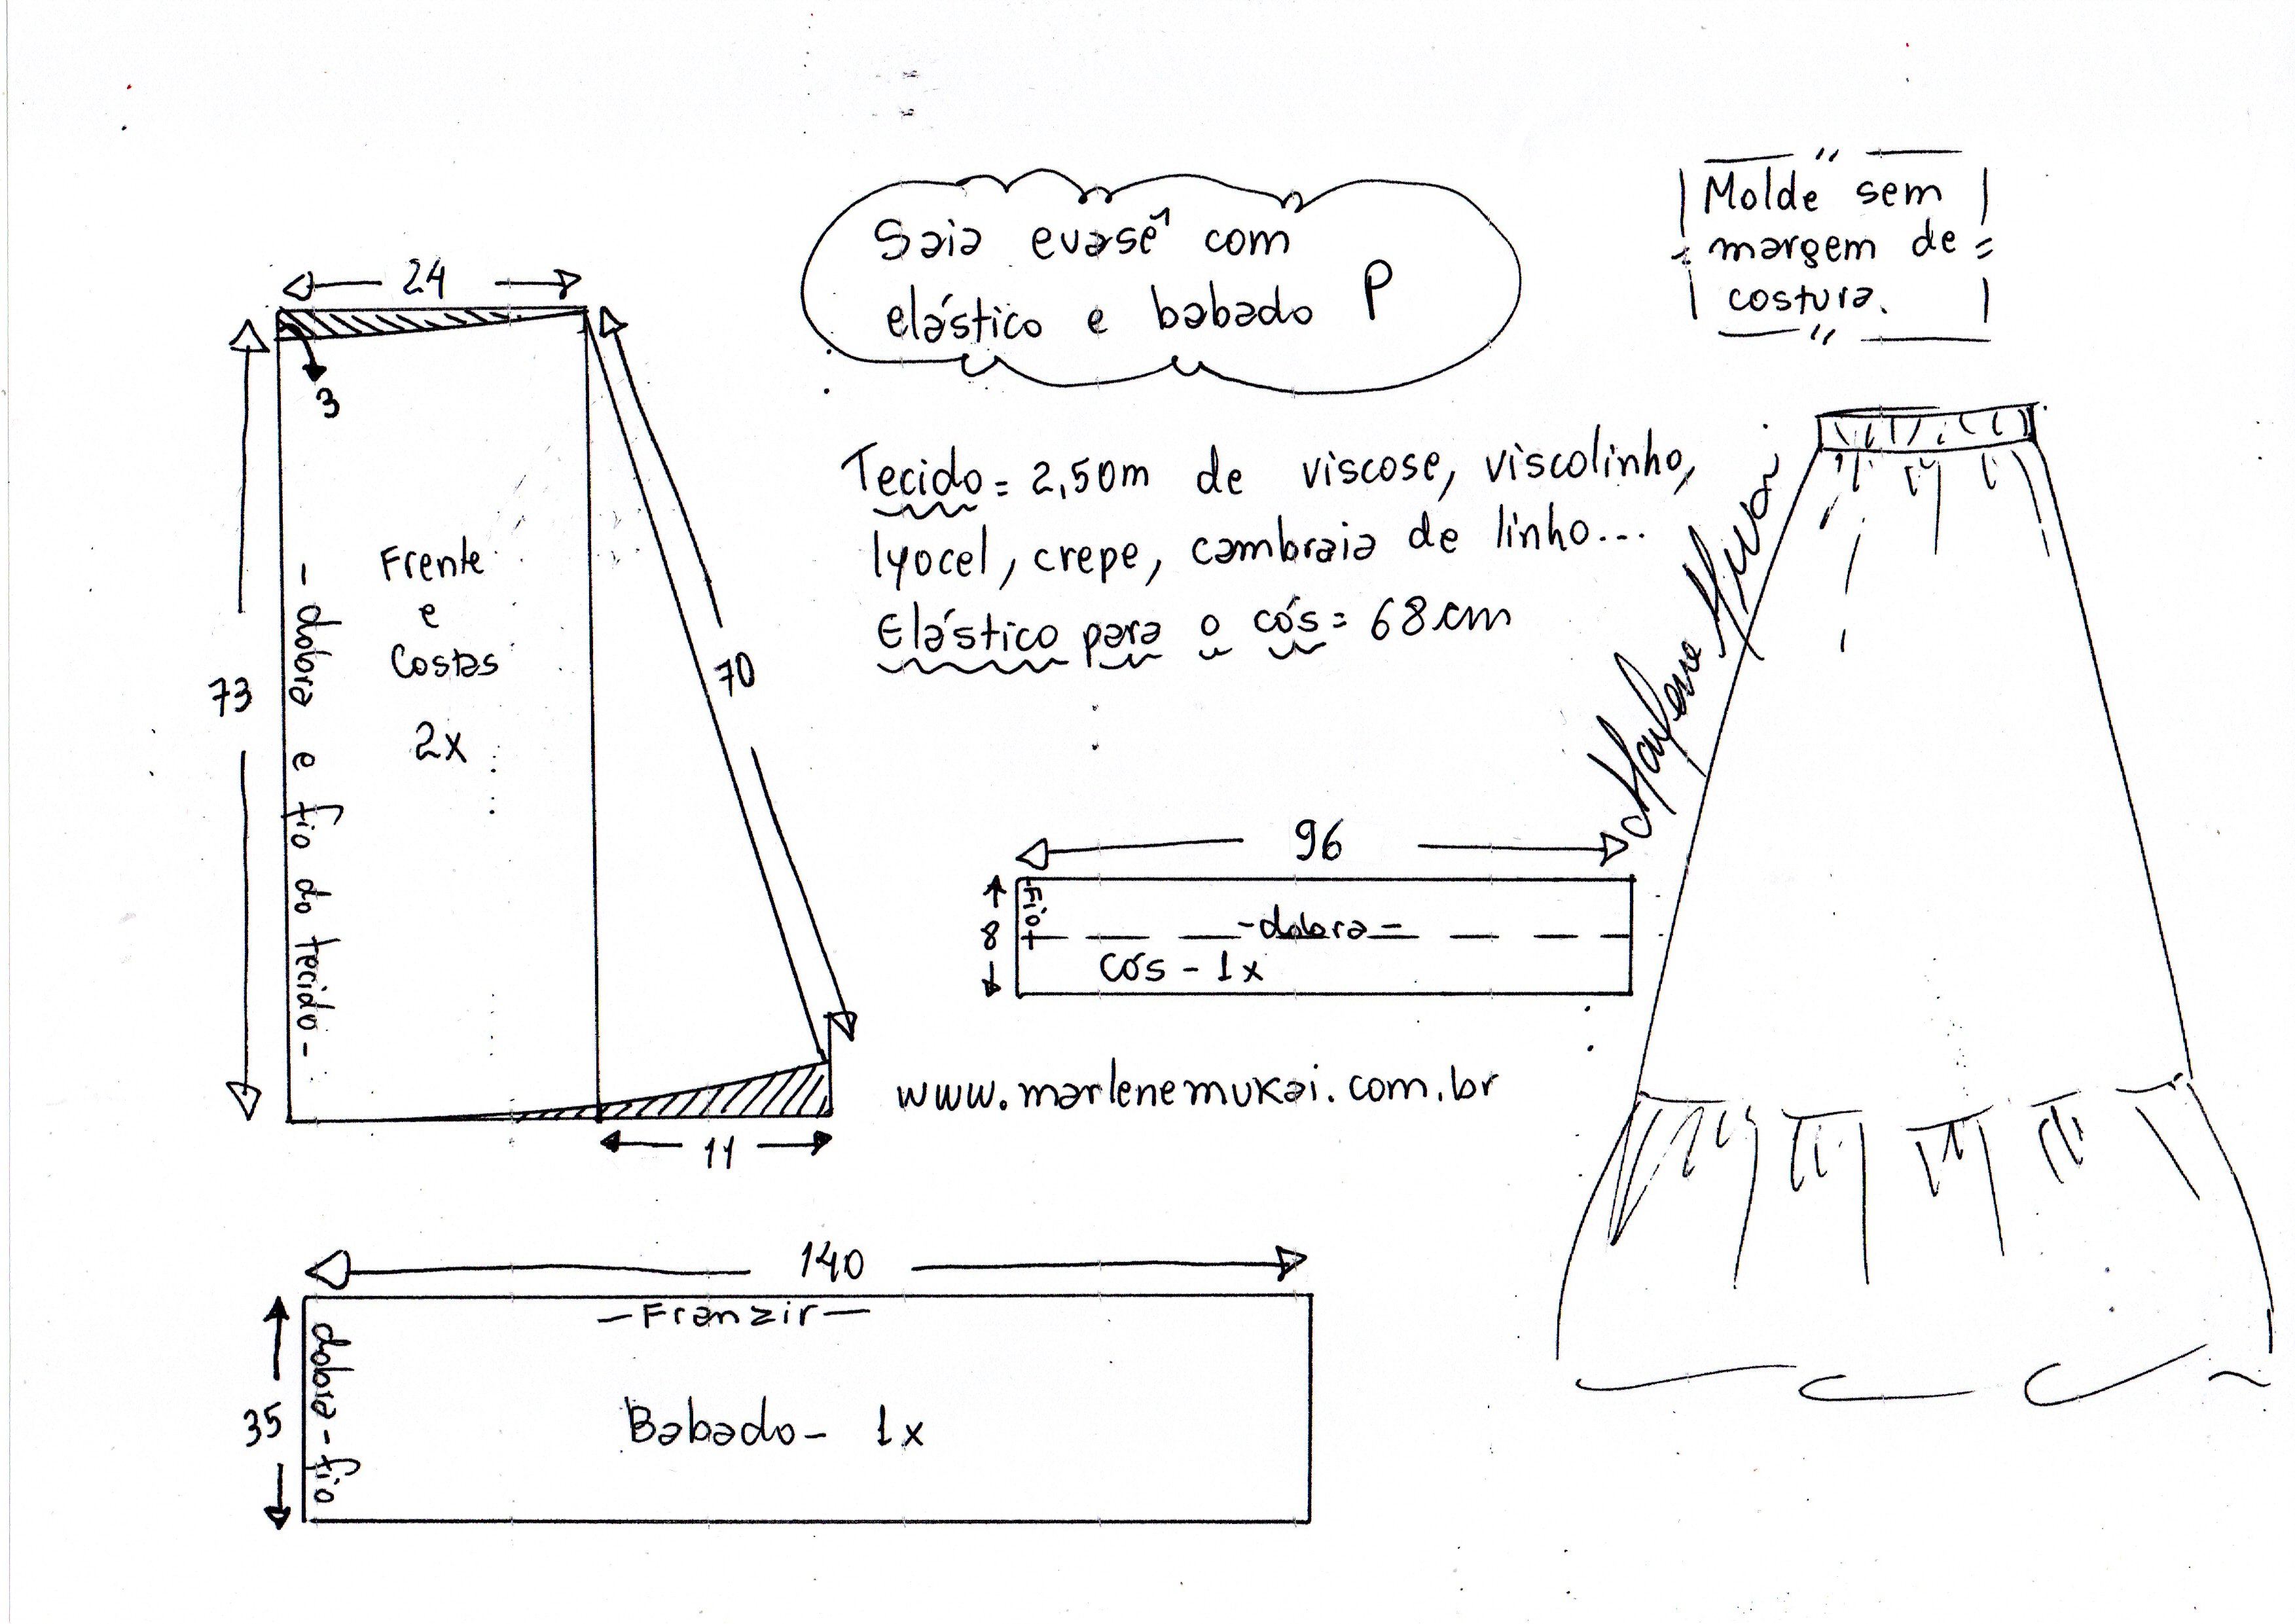 Saia evasê com
elástico e babado P
Molde sem
margem de
costura.
24
3
73
70
- dobra e fio do tecido -
Frente
e
Costas
2x
11
Tecido = 2,50m de viscose, viscolinho,
lyocel, crepe, cambraia de linho...
Elástico para o cós = 68 cm
Marlene Mukai
96
8
Fio
- dobra -
cós - 1x
www.marlenemukai.com.br
140
35
- Franzir -
dobra - fio
Babado - 1x